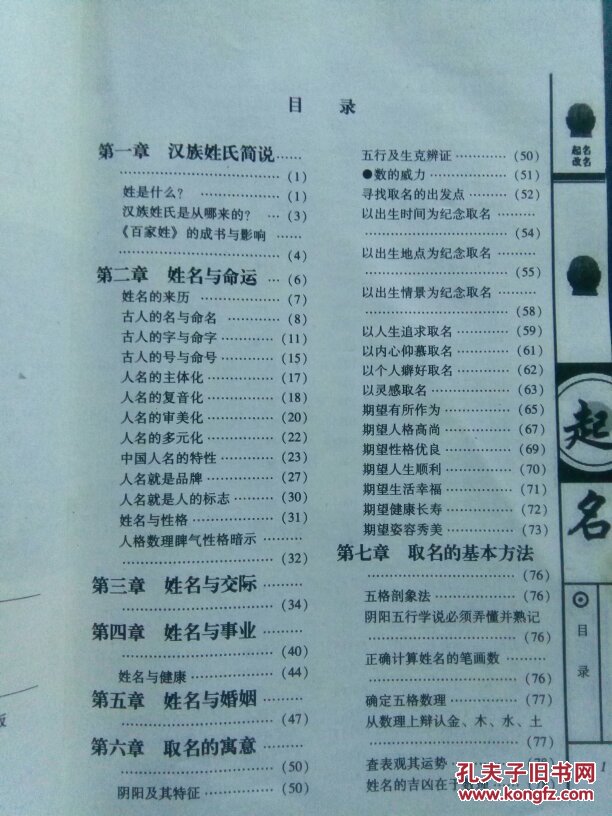 目 录
第一章 汉族姓氏简说……
………………………(1)
姓是什么? …………(1)
汉族姓氏是从哪来的? …(3)
《百家姓》的成书与影响 ……
………………………(4)
第二章 姓名与命运 …(6)
姓名的来历 …………(7)
古人的名与命名 ………(8)
古人的字与命字 ………(11)
古人的号与命号 ………(15)
人名的主体化 …………(17)
人名的复音化 …………(18)
人名的审美化 …………(20)
人名的多元化 …………(22)
中国人名的特性 ………(23)
人名就是品牌 …………(27)
人名就是人的标志 ……(30)
姓名与性格 …………(31)
人格数理脾气性格暗示 ……
………………………(32)
第三章 姓名与交际 ……
………………………(34)
第四章 姓名与事业 ……
………………………(40)
姓名与健康 …………(44)
第五章 姓名与婚姻 ……
………………………(47)
第六章 取名的寓意 ……
………………………(50)
阴阳及其特征 …………(50)
五行及生克辨证 ………(50)
●数的威力 …………(51)
寻找取名的出发点 ……(52)
以出生时间为纪念取名 ……
………………………(54)
以出生地点为纪念取名 ……
………………………(55)
以出生情景为纪念取名 ……
………………………(58)
以人生追求取名 ………(59)
以内心仰慕取名 ………(61)
以个人癖好取名 ………(62)
以灵感取名 …………(63)
期望有所作为 …………(65)
期望人格高尚 …………(67)
期望性格优良 …………(69)
期望人生顺利 …………(70)
期望生活幸福 …………(71)
期望健康长寿 …………(72)
期望姿容秀美 …………(73)
第七章 取名的基本方法
………………………(76)
五格剖象法 …………(76)
阴阳五行学说必须弄懂并熟记
………………………(76)
正确计算姓名的笔画数 ……
………………………(76)
确定五格数理 …………(77)
从数理上辩认金、木、水、土
………………………(77)
查表观其运势 …………
姓名的吉凶在于
起名
改名
起
名
目
录
1
孔夫子旧书网
www.kongfz.com
版